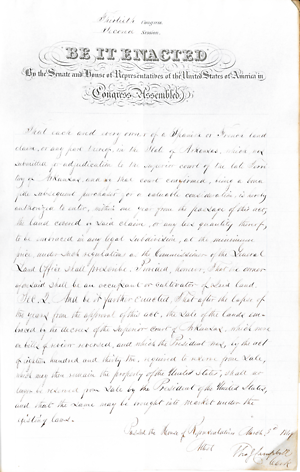 Congress
Session
BE IT ENACTED
By the Senate and House of Representatives of the United States of America in
Congress Assembled,
That each and every owner of a Spanish or French land
claim, or any part thereof, in the State of Arkansas, which was
submitted for adjudication to the superior court of the late Territory
of Arkansas, and by that court confirmed, being a bona
fide subsequent purchaser for a valuable consideration, is hereby
authorized to enter, within one year from the passage of this act,
the land covered by said claim, or any less quantity thereof,
to be surveyed in any legal subdivision, at the minimum
price under such regulations as the Commissioner of the General
Land Office shall prescribe. Provided, however, that the owner
shall be an occupant or cultivator of said land.
Sec. 2. And be it further enacted, That after the lapse of
one year from the approval of this act, the sale of the lands em-
braced in the decrees of the Superior Court of Arkansas, which were
reviewed, and which the President was, by the act
of eighteen hundred and thirty, required to reserve from sale,
which may then remain the property of the United States, shall no
longer be reserved from sale by the President of the United States,
and shall the same may be brought into market under the
existing laws.
Passed the House of Representatives March 1st
Attest
Campbell
Clerk